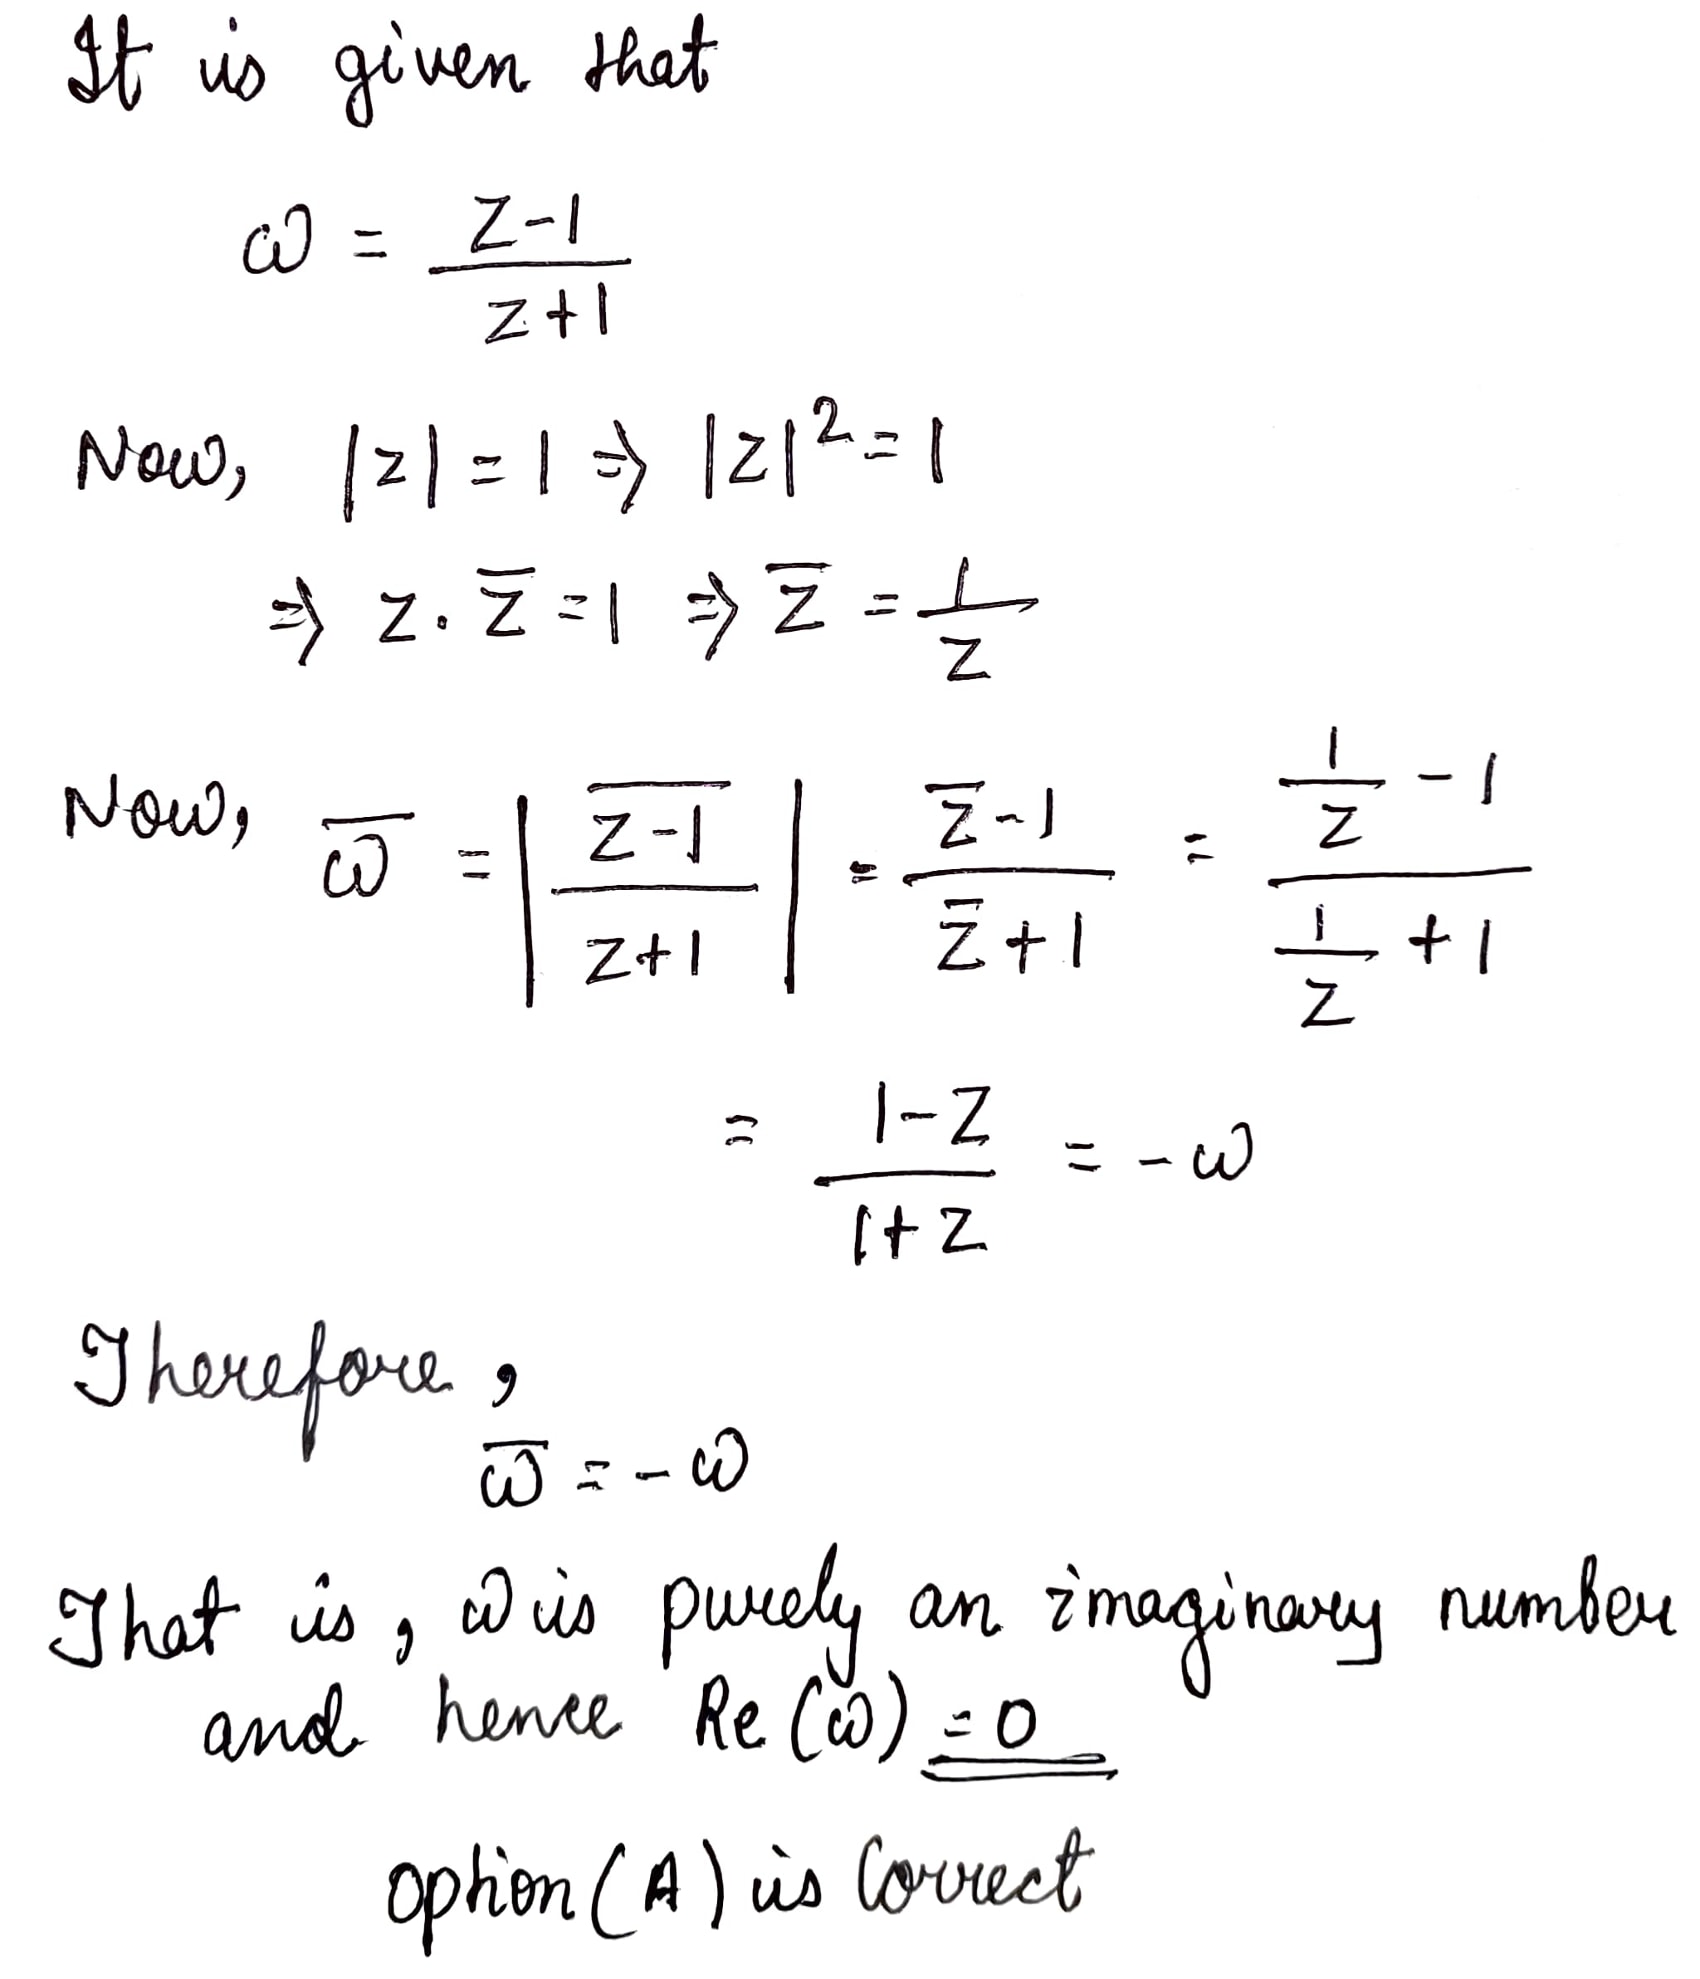 It is given that
ω = (z-1)/(z+1)
Now, |z| = 1 ⇒ |z|² = 1
⇒ z . z̅ = 1 ⇒ z̅ = 1/z
Now, ω̅ = |(\overline{z-1})/(z+1)| = (z̅-1)/(z̅+1) = (1/z - 1)/(1/z + 1)
= (1-z)/(1+z) = -ω
Therefore,
ω̅ = -ω
That is, ω is purely an imaginary number
and hence Re(ω) = 0
option (A) is Correct